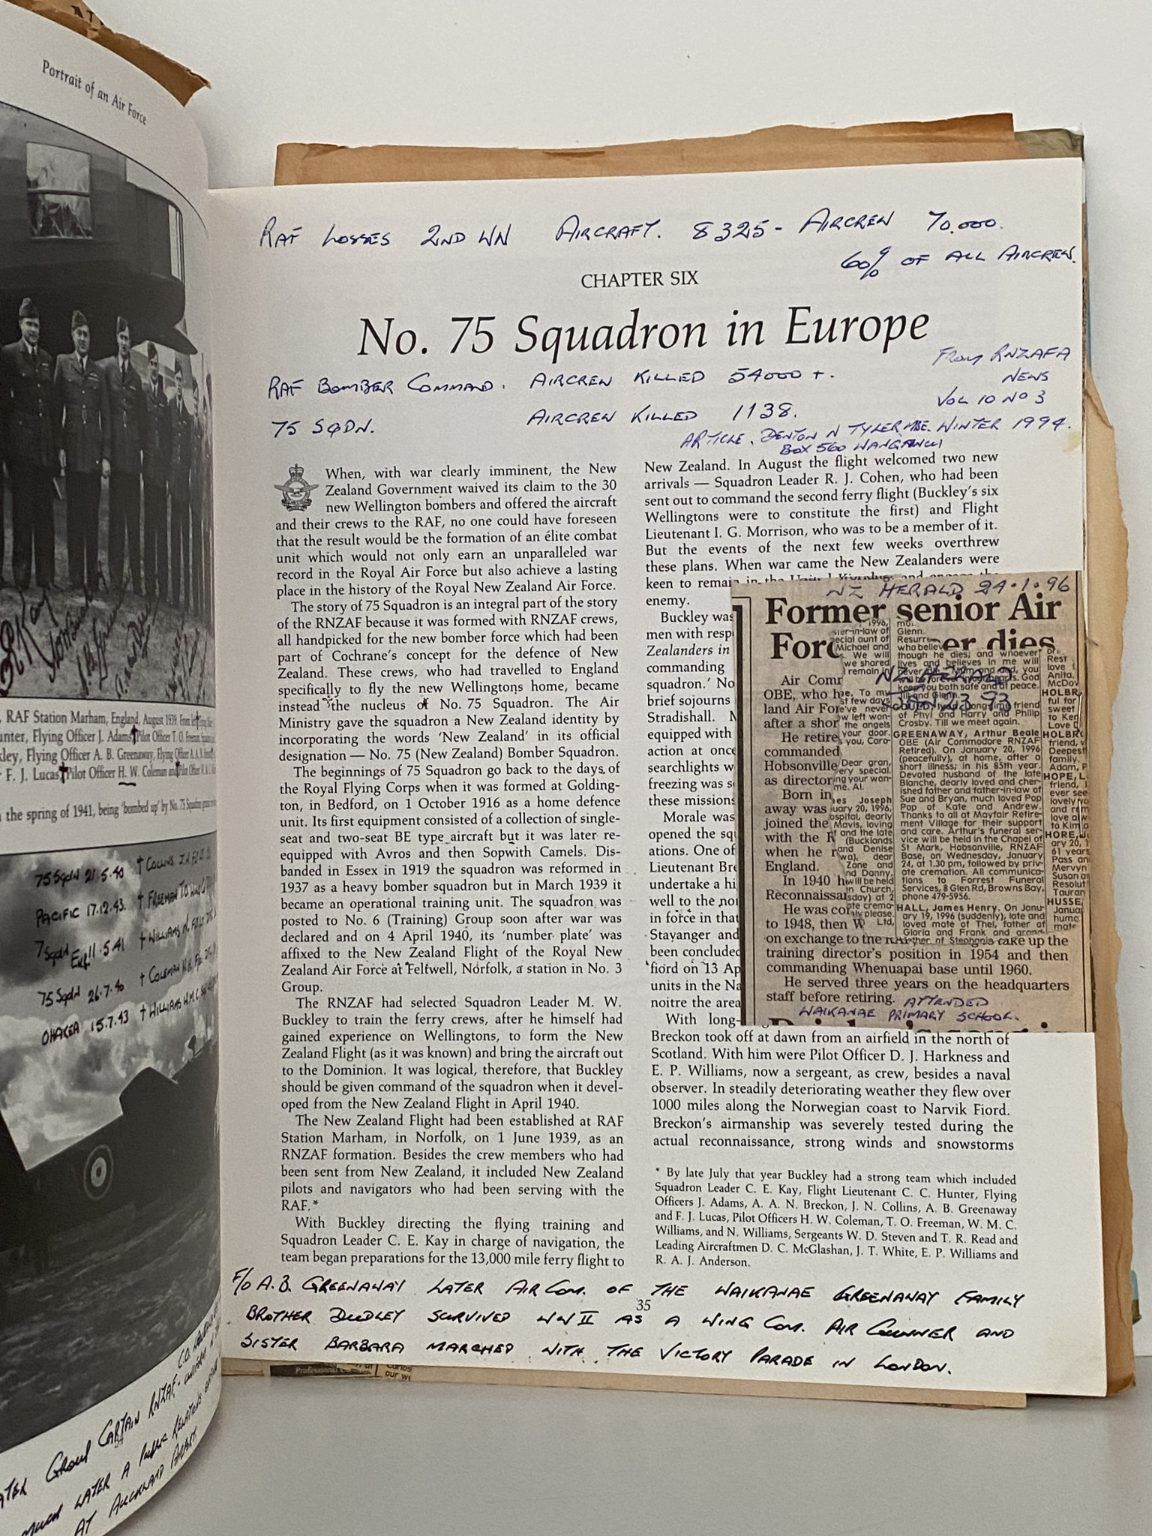 Portrait of an Air Force
RAF Station Marham, England, August 1939. From left
unter, Flying Officer J. Adams Pilot Officer T. O. Freeman
kley, Flying Officer A. B. Greenaway, Flying Officer A. A. N.
F. J. Lucas Pilot Officer H. W. Coleman and Pilot Officer
the spring of 1941, being 'bombed up' by No. 75 Squadron
75 Sqdn 21.5.40 † COLLINS
PACIFIC 17.12.43. † FREEMAN T.O.
7 Sqdn 11.5.41 † WILLIAMS N.
75 Sqdn 26.7.40 † COLEMAN
OHAKEA 15.7.43 † WILLIAMS W.M.C.
LATER GROUP CAPTAIN RNZAF.
MUCH LATER A PUBLIC RELATIONS
AT AUCKLAND
RAF LOSSES 2ND WW AIRCRAFT. 8325 - AIRCREW 70,000.
60% OF ALL AIRCREW.
CHAPTER SIX
No. 75 Squadron in Europe
From RNZAFA
NEWS
VOL 10 NO 3
RAF BOMBER COMMAND. AIRCREW KILLED 54000 +.
75 SQDN. AIRCREW KILLED 1138.
ARTICLE. DENTON N TYLER MBE. WINTER 1994.
BOX 560 WANGANUI
When, with war clearly imminent, the New
Zealand Government waived its claim to the 30
new Wellington bombers and offered the aircraft
and their crews to the RAF, no one could have foreseen
that the result would be the formation of an élite combat
unit which would not only earn an unparalleled war
record in the Royal Air Force but also achieve a lasting
place in the history of the Royal New Zealand Air Force.
The story of 75 Squadron is an integral part of the story
of the RNZAF because it was formed with RNZAF crews,
all handpicked for the new bomber force which had been
part of Cochrane's concept for the defence of New
Zealand. These crews, who had travelled to England
specifically to fly the new Wellingtons home, became
instead the nucleus of No. 75 Squadron. The Air
Ministry gave the squadron a New Zealand identity by
incorporating the words 'New Zealand' in its official
designation — No. 75 (New Zealand) Bomber Squadron.
The beginnings of 75 Squadron go back to the days of
the Royal Flying Corps when it was formed at Golding-
ton, in Bedford, on 1 October 1916 as a home defence
unit. Its first equipment consisted of a collection of single-
seat and two-seat BE type aircraft but it was later re-
equipped with Avros and then Sopwith Camels. Dis-
banded in Essex in 1919 the squadron was reformed in
1937 as a heavy bomber squadron but in March 1939 it
became an operational training unit. The squadron was
posted to No. 6 (Training) Group soon after war was
declared and on 4 April 1940, its 'number plate' was
affixed to the New Zealand Flight of the Royal New
Zealand Air Force at Feltwell, Norfolk, a station in No. 3
Group.
The RNZAF had selected Squadron Leader M. W.
Buckley to train the ferry crews, after he himself had
gained experience on Wellingtons, to form the New
Zealand Flight (as it was known) and bring the aircraft out
to the Dominion. It was logical, therefore, that Buckley
should be given command of the squadron when it devel-
oped from the New Zealand Flight in April 1940.
The New Zealand Flight had been established at RAF
Station Marham, in Norfolk, on 1 June 1939, as an
RNZAF formation. Besides the crew members who had
been sent from New Zealand, it included New Zealand
pilots and navigators who had been serving with the
RAF.*
With Buckley directing the flying training and
Squadron Leader C. E. Kay in charge of navigation, the
team began preparations for the 13,000 mile ferry flight to
New Zealand. In August the flight welcomed two new
arrivals — Squadron Leader R. J. Cohen, who had been
sent out to command the second ferry flight (Buckley's six
Wellingtons were to constitute the first) and Flight
Lieutenant I. G. Morrison, who was to be a member of it.
But the events of the next few weeks overthrew
these plans. When war came the New Zealanders were
keen to remain in the
enemy.
Buckley was
men with resp
Zealanders in
commanding
squadron.' No
brief sojourns
Stradishall.
equipped with
action at once
searchlights w
freezing was s
these missions
Morale was
opened the sq
ations. One of
Lieutenant Bre
undertake a hi
well to the no
in force in that
Stavanger and
been concluded
fiord on 13 Ap
units in the Na
noitre the area
With long-
NZ HERALD 24.1.96
Former senior Air
Forc er dies
NZ HERALD
JAN 23 93
Air Comr
OBE, who h
land Air For
after a shor
He retire
commanded
Hobsonville
as director
Born in
away was
joined the
with the R
when he r
England.
In 1940 h
Reconnaissa
He was co
to 1948, then W
on exchange to the take up the
training director's position in 1954 and then
commanding Whenuapai base until 1960.
He served three years on the headquarters
staff before retiring. ATTENDED
WAIKANAE PRIMARY SCHOOL.
GREENAWAY, Arthur Beale
OBE (Air Commodore RNZAF
Retired). On January 20, 1996
(peacefully), at home, after a
short illness; in his 85th year.
Devoted husband of the late
Blanche, dearly loved and cher-
ished father and father-in-law of
Sue and Bryan, much loved Pop
Pop of Kate and Andrew.
Thanks to all at Mayfair Retire-
ment Village for their support
and care. Arthur's funeral ser-
vice will be held in the Chapel of
St Mark, Hobsonville, RNZAF
Base, on Wednesday, January
24, at 1.30 pm, followed by priv-
ate cremation. All communica-
tions to Forrest Funeral
Services, 8 Glen Rd, Browns Bay,
phone 479-5956.
HALL, James Henry. On Janu-
ary 19, 1996 (suddenly), late and
loved mate of Thel, father of
Gloria and Frank and
Breckon took off at dawn from an airfield in the north of
Scotland. With him were Pilot Officer D. J. Harkness and
E. P. Williams, now a sergeant, as crew, besides a naval
observer. In steadily deteriorating weather they flew over
1000 miles along the Norwegian coast to Narvik Fiord.
Breckon's airmanship was severely tested during the
actual reconnaissance, strong winds and snowstorms
* By late July that year Buckley had a strong team which included
Squadron Leader C. E. Kay, Flight Lieutenant C. C. Hunter, Flying
Officers J. Adams, A. A. N. Breckon, J. N. Collins, A. B. Greenaway
and F. J. Lucas, Pilot Officers H. W. Coleman, T. O. Freeman, W. M. C.
Williams, and N. Williams, Sergeants W. D. Steven and T. R. Read and
Leading Aircraftmen D. C. McGlashan, J. T. White, E. P. Williams and
R. A. J. Anderson.
F/O A.B. GREENAWAY LATER AIR COM. OF THE WAIKANAE GREENAWAY FAMILY
35
BROTHER DUDLEY SURVIVED WW II AS A WING COM. AIR GUNNER AND
SISTER BARBARA MARCHED WITH THE VICTORY PARADE IN LONDON.